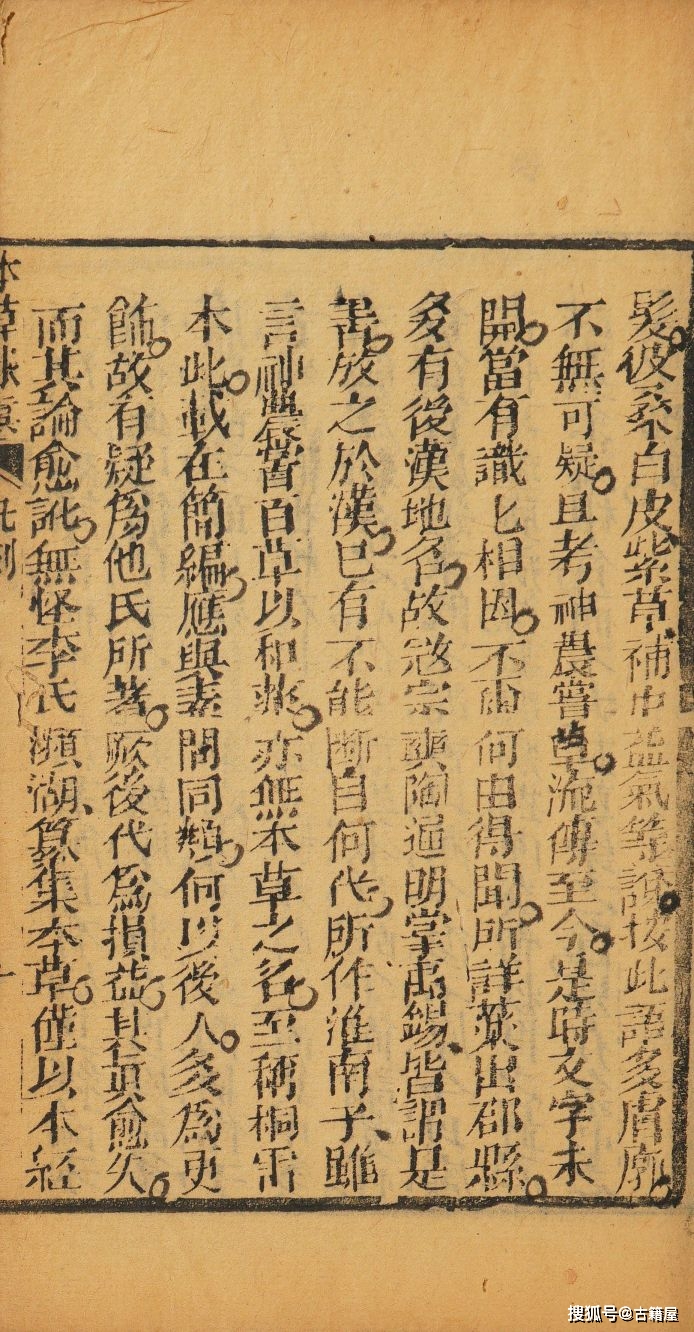 髮彼桑白皮紫草補中益氣等說按此語多膚廓
不無可疑且考神農嘗草流傳至今是時文字未
開當有識匕相因不何由得聞所詳藥出郡縣
多有後漢地名故寇宗奭陶通明掌禹錫皆謂是
書放之於漢已有不能斷自何代所作淮南子雖
言神農嘗百草以和藥亦無本草之名至稱桐雷
本此載在簡編應與素問同類何以後人多爲更
飾故有疑爲他氏所著厥後代爲損益其真愈失
而其論愈訛無怪李氏瀕湖纂集本草僅以本經
本草求真 凡例
搜狐号@古籍屋